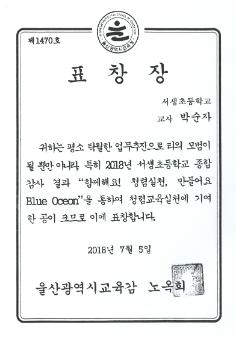 제1470호
표 창 장
서생초등학교
교사 박순자
귀하는 평소 탁월한 업무추진으로 타의 모범이
될 뿐만 아니라, 특히 2018년 서생초등학교 종합
감사 결과 "함께해요! 청렴실천, 만들어요
Blue Ocean"을 통하여 청렴교육실천에 기여
한 공이 크므로 이에 표창합니다.
2018년 7월 5일
울산광역시교육감 노옥희